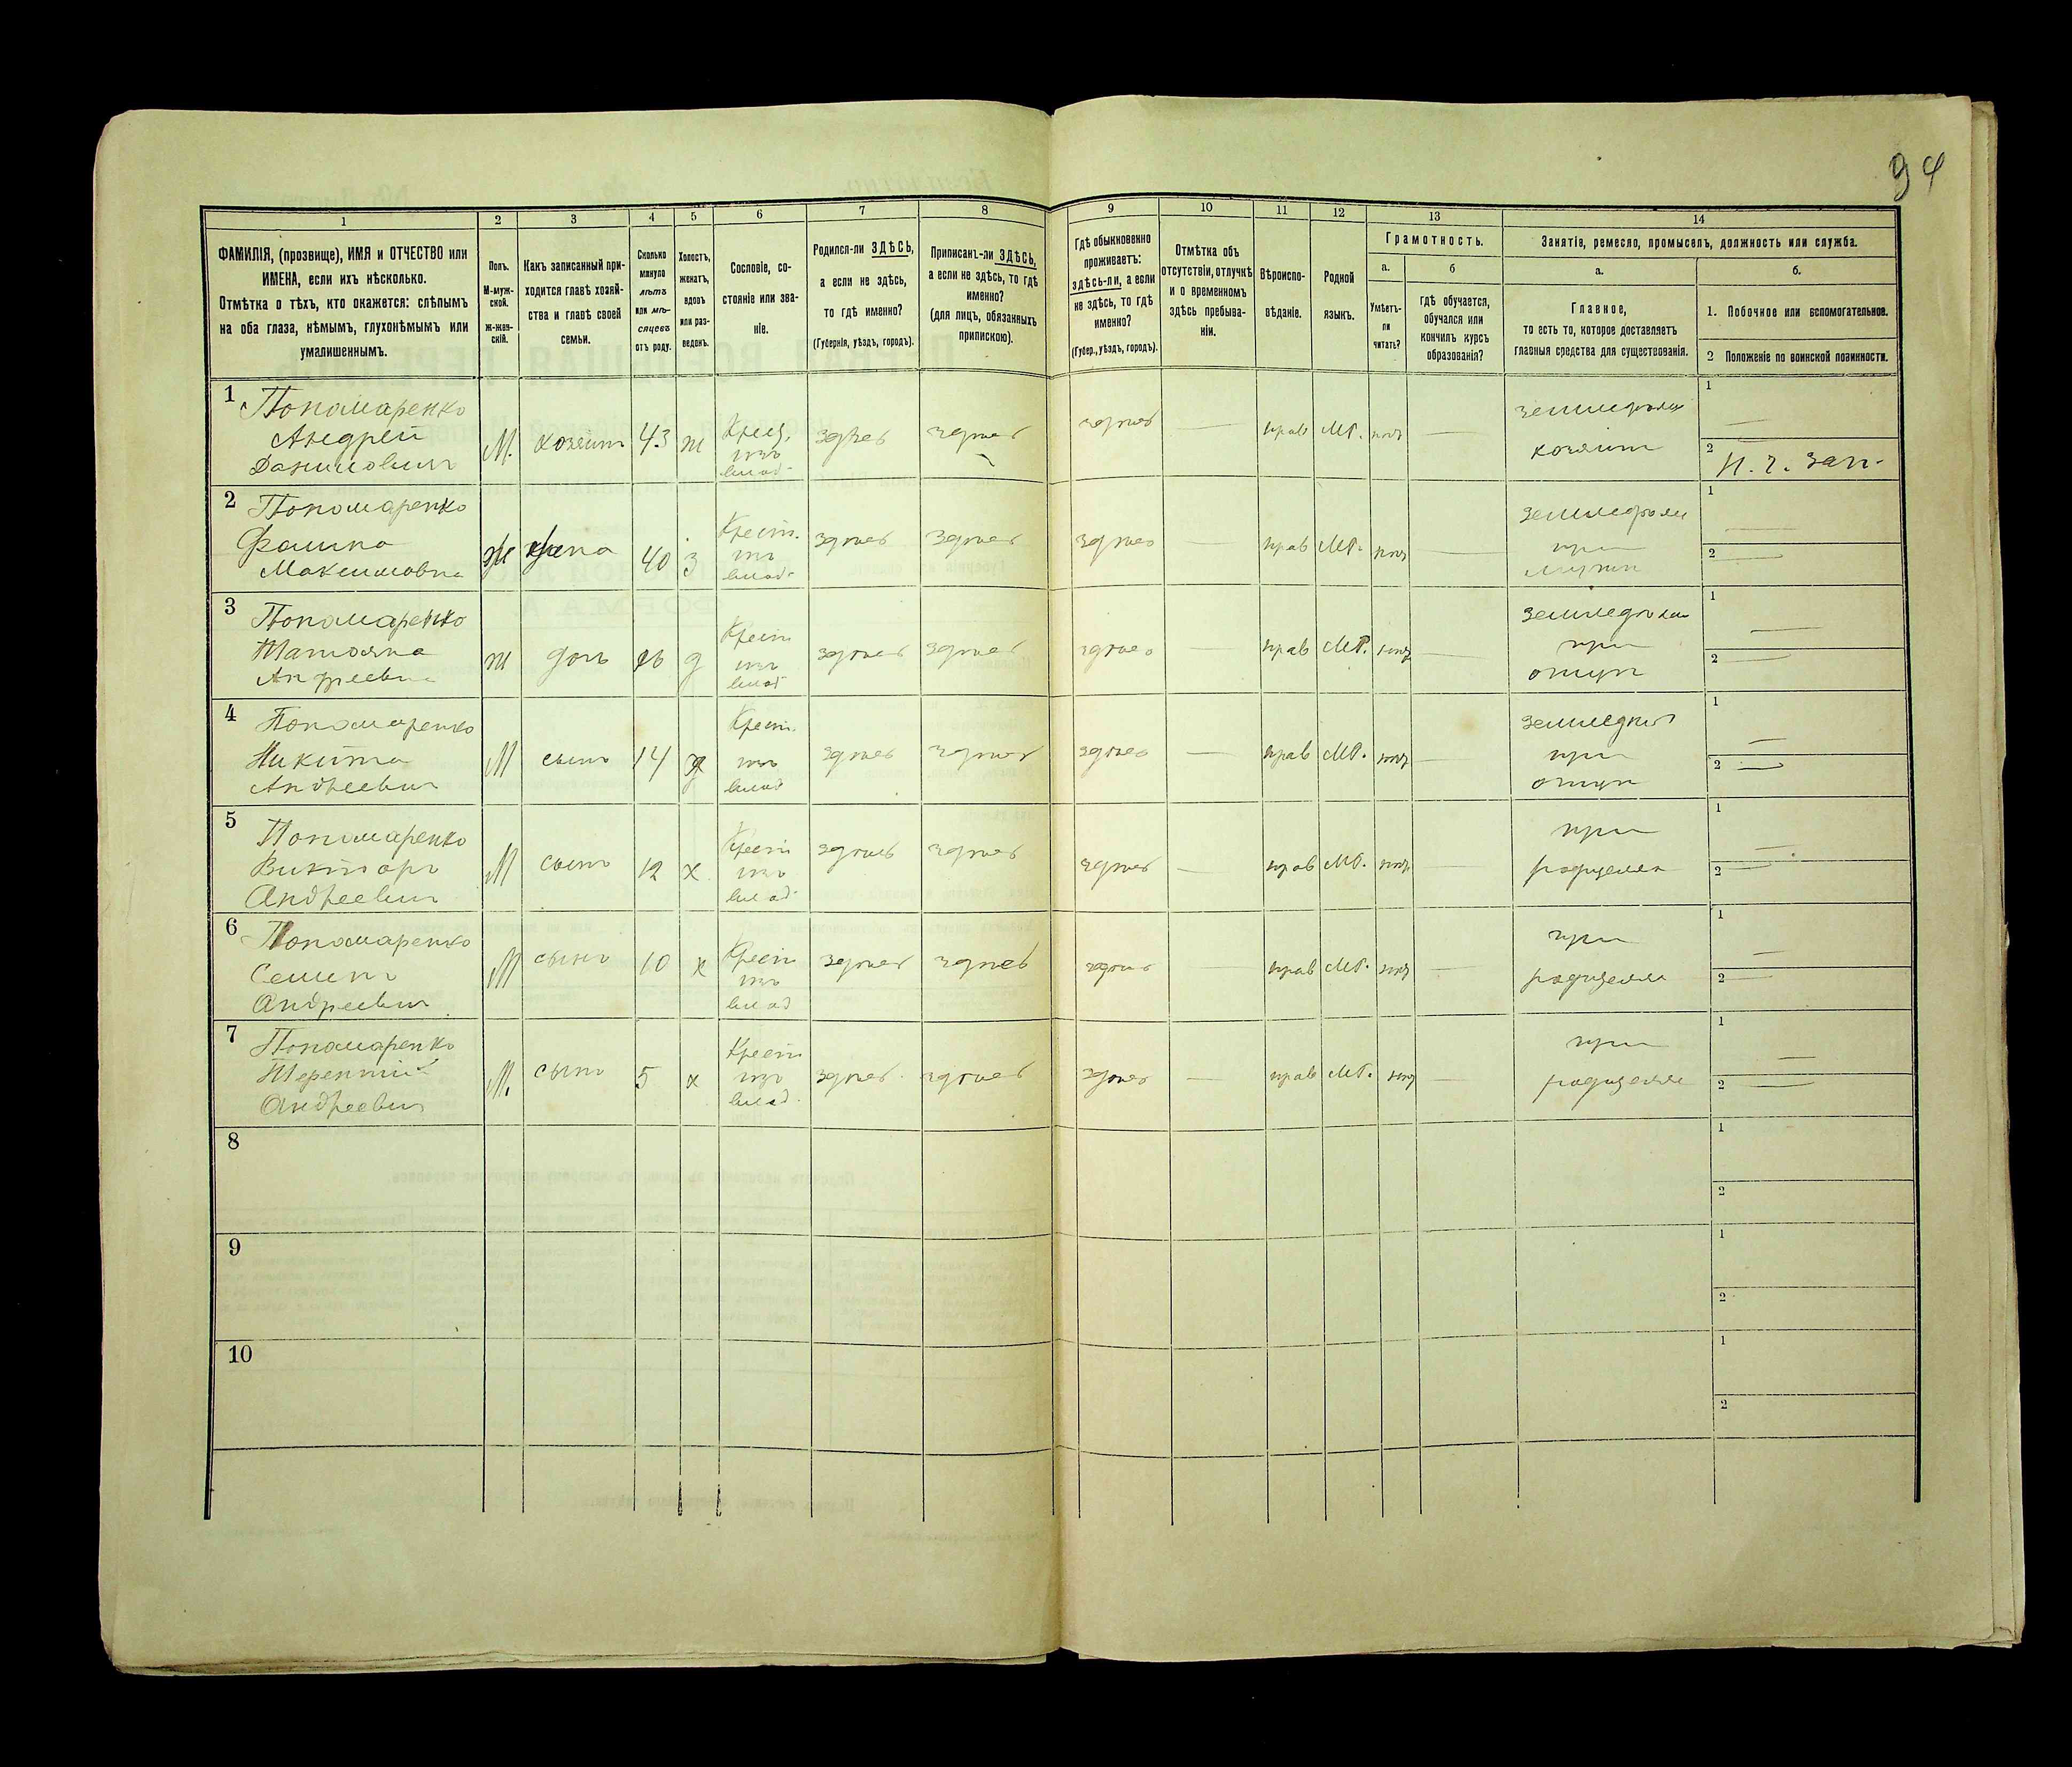 94
1 2 3 4 5 6 7 8 9 10 11 12 13 14
ФАМИЛІЯ, (прозвище), ИМЯ и ОТЧЕСТВО или
ИМЕНА, если ихъ нѣсколько.
Отмѣтка о тѣхъ, кто окажется: слѣпымъ
на оба глаза, нѣмымъ, глухонѣмымъ или
умалишеннымъ.
Полъ.
М-муж-
ской.
ж-жен-
скій.
Какъ записанный при-
ходится главѣ хозяй-
ства и главѣ своей
семьи.
Сколько
минуло
лѣтъ
или мѣ-
сяцевъ
отъ роду.
Холостъ,
женатъ,
вдовъ
или раз-
веденъ.
Сословіе, со-
стояніе или зва-
ніе.
Родился-ли ЗДѢСЬ,
а если не здѣсь,
то гдѣ именно?
(Губернія, уѣздъ, городъ).
Приписанъ-ли ЗДѢСЬ,
а если не здѣсь, то гдѣ
именно?
(для лицъ, обязанныхъ
припискою).
Гдѣ обыкновенно
проживаетъ:
здѣсь-ли, а если
не здѣсь, то гдѣ
именно?
(Губер., уѣздъ, городъ).
Отмѣтка объ
отсутствіи, отлучкѣ
и о временномъ
здѣсь пребыва-
ніи.
Вѣроиспо-
вѣданіе.
Родной
языкъ.
Грамотность.
а.
Умѣетъ-
ли
читать?
б
гдѣ обучается,
обучался или
кончилъ курсъ
образованія?
Занятіе, ремесло, промыселъ, должность или служба.
а.
Главное,
то есть то, которое доставляетъ
главныя средства для существованія.
б.
1. Побочное или вспомогательное.
2 Положеніе по воинской повинности.
1
Пономаренко
Андрей
Даниловичъ
М. хозяинъ 43 ж
Крест.
изъ
влад.
здѣсь здѣсь здѣсь — прав М.Р. нѣтъ —
земледѣлец
хозяинъ
1 —
2 Н. 2. зап.
2
Пономаренко
Максимовна
ж жена 40 з
Крест.
изъ
влад.
здѣсь здѣсь здѣсь — прав М.Р. нѣтъ —
при
1 —
2 —
3
Пономаренко
Татьяна
Андреевна
ж дочь д
Крест
изъ
влад
здѣсь здѣсь здѣсь — прав М.Р. нѣтъ —
при
1 —
2 —
4
Пономаренко
Никита
Андреевич
М сынъ 14
Крест.
изъ
влад
здѣсь здѣсь здѣсь — прав М.Р. нѣтъ —
при
1 —
2 —
5
Пономаренко
Викторъ
Андреевич
М сынъ 12 х
Крест
изъ
влад.
здѣсь здѣсь здѣсь — прав М.Р. нѣтъ —
при
родителях
1 —
2 —
6
Пономаренко
Семенъ
Андреевич
М сынъ 10 х
Крест
изъ
влад
здѣсь здѣсь здѣсь — прав М.Р. нѣтъ —
при
родителях
1 —
2 —
7
Пономаренко
Терентій
Андреевич
М. сынъ 5 х
Крест
изъ
влад.
здѣсь здѣсь здѣсь — прав М.Р. нѣтъ —
при
родителях
1 —
2 —
8
1
2
9
1
2
10
1
2